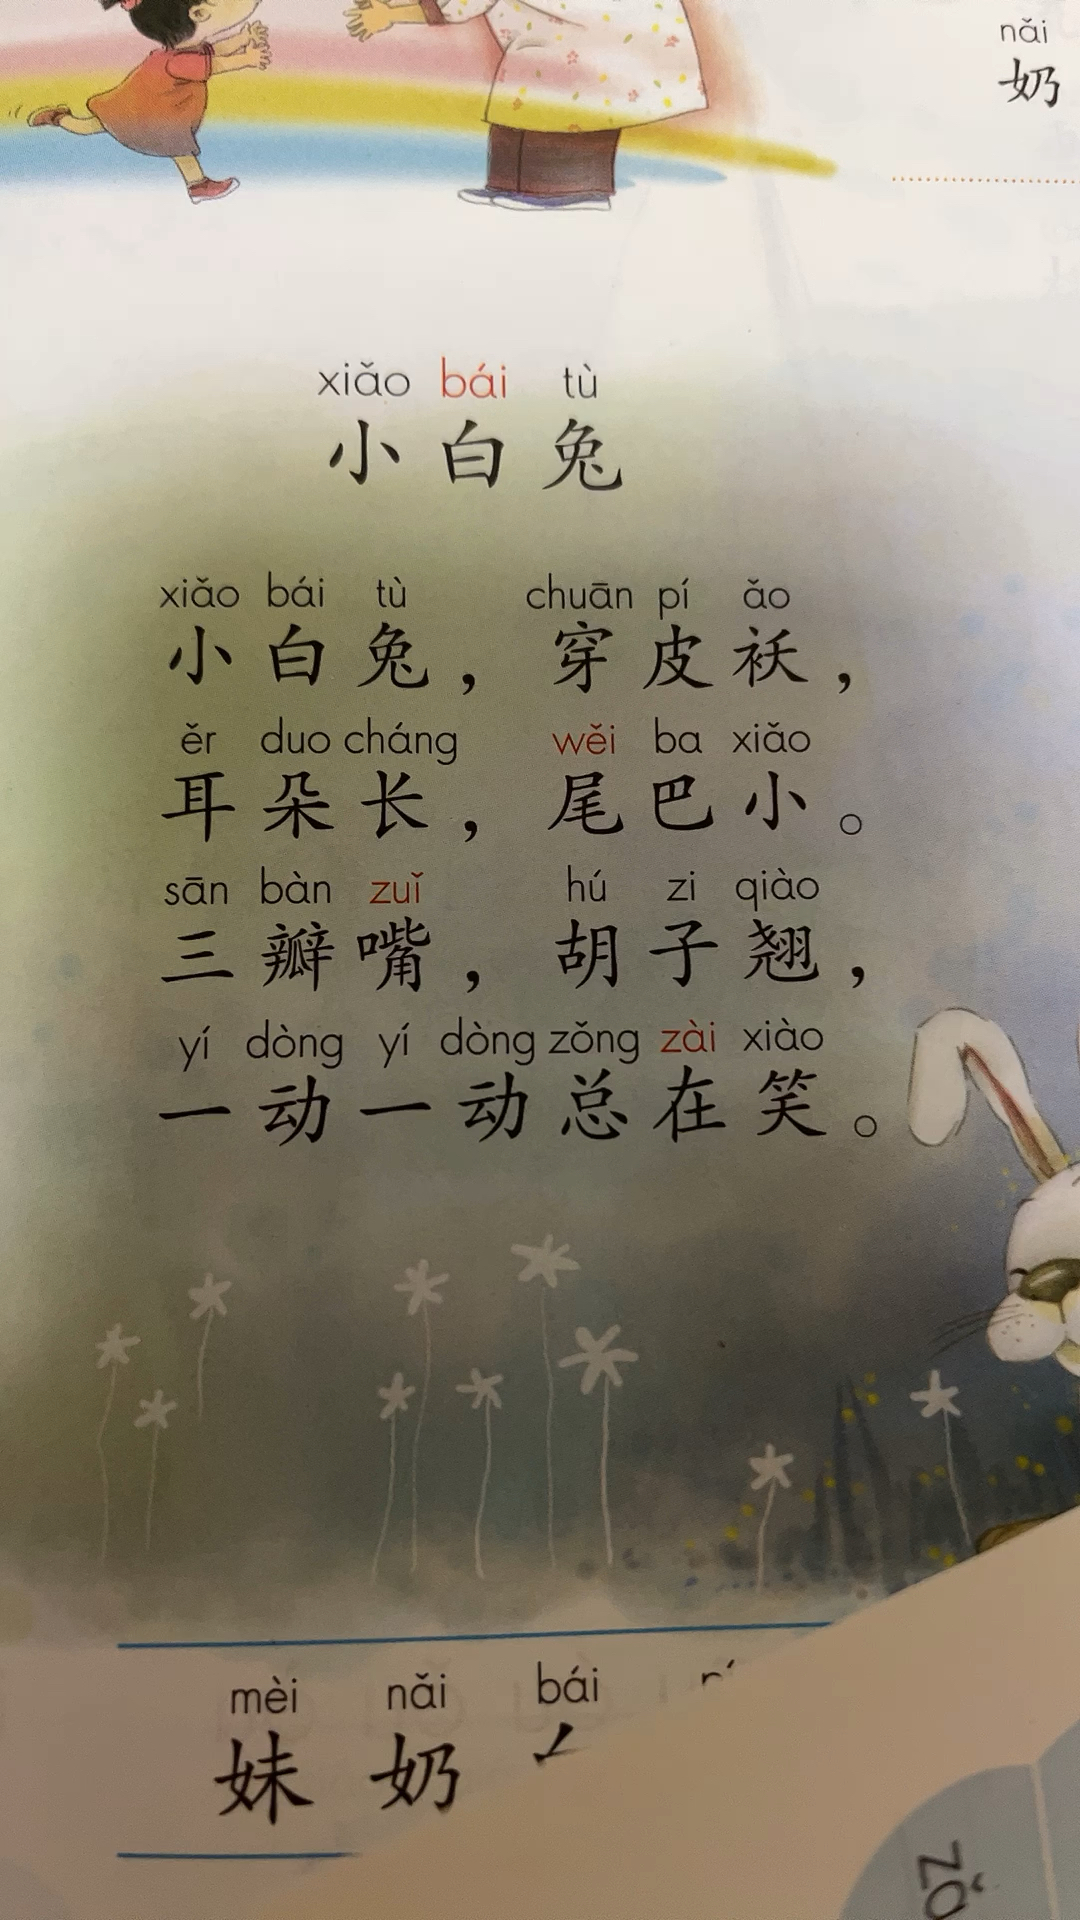 nǎi
奶
xiǎo bái tù
小白兔
xiǎo bái tù chuān pí ǎo
小白兔，穿皮袄，
ěr duo cháng wěi ba xiǎo
耳朵长，尾巴小。
sān bàn zuǐ hú zi qiào
三瓣嘴，胡子翘，
yí dòng yí dòng zǒng zài xiào
一动一动总在笑。
mèi nǎi bái
妹 奶